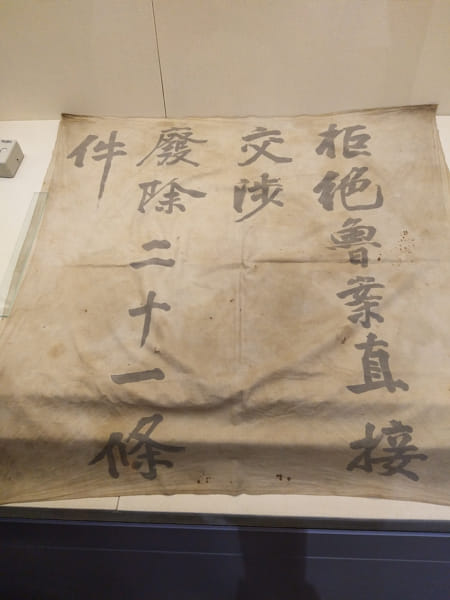 拒絕魯案直接
交涉
廢除二十一條
件